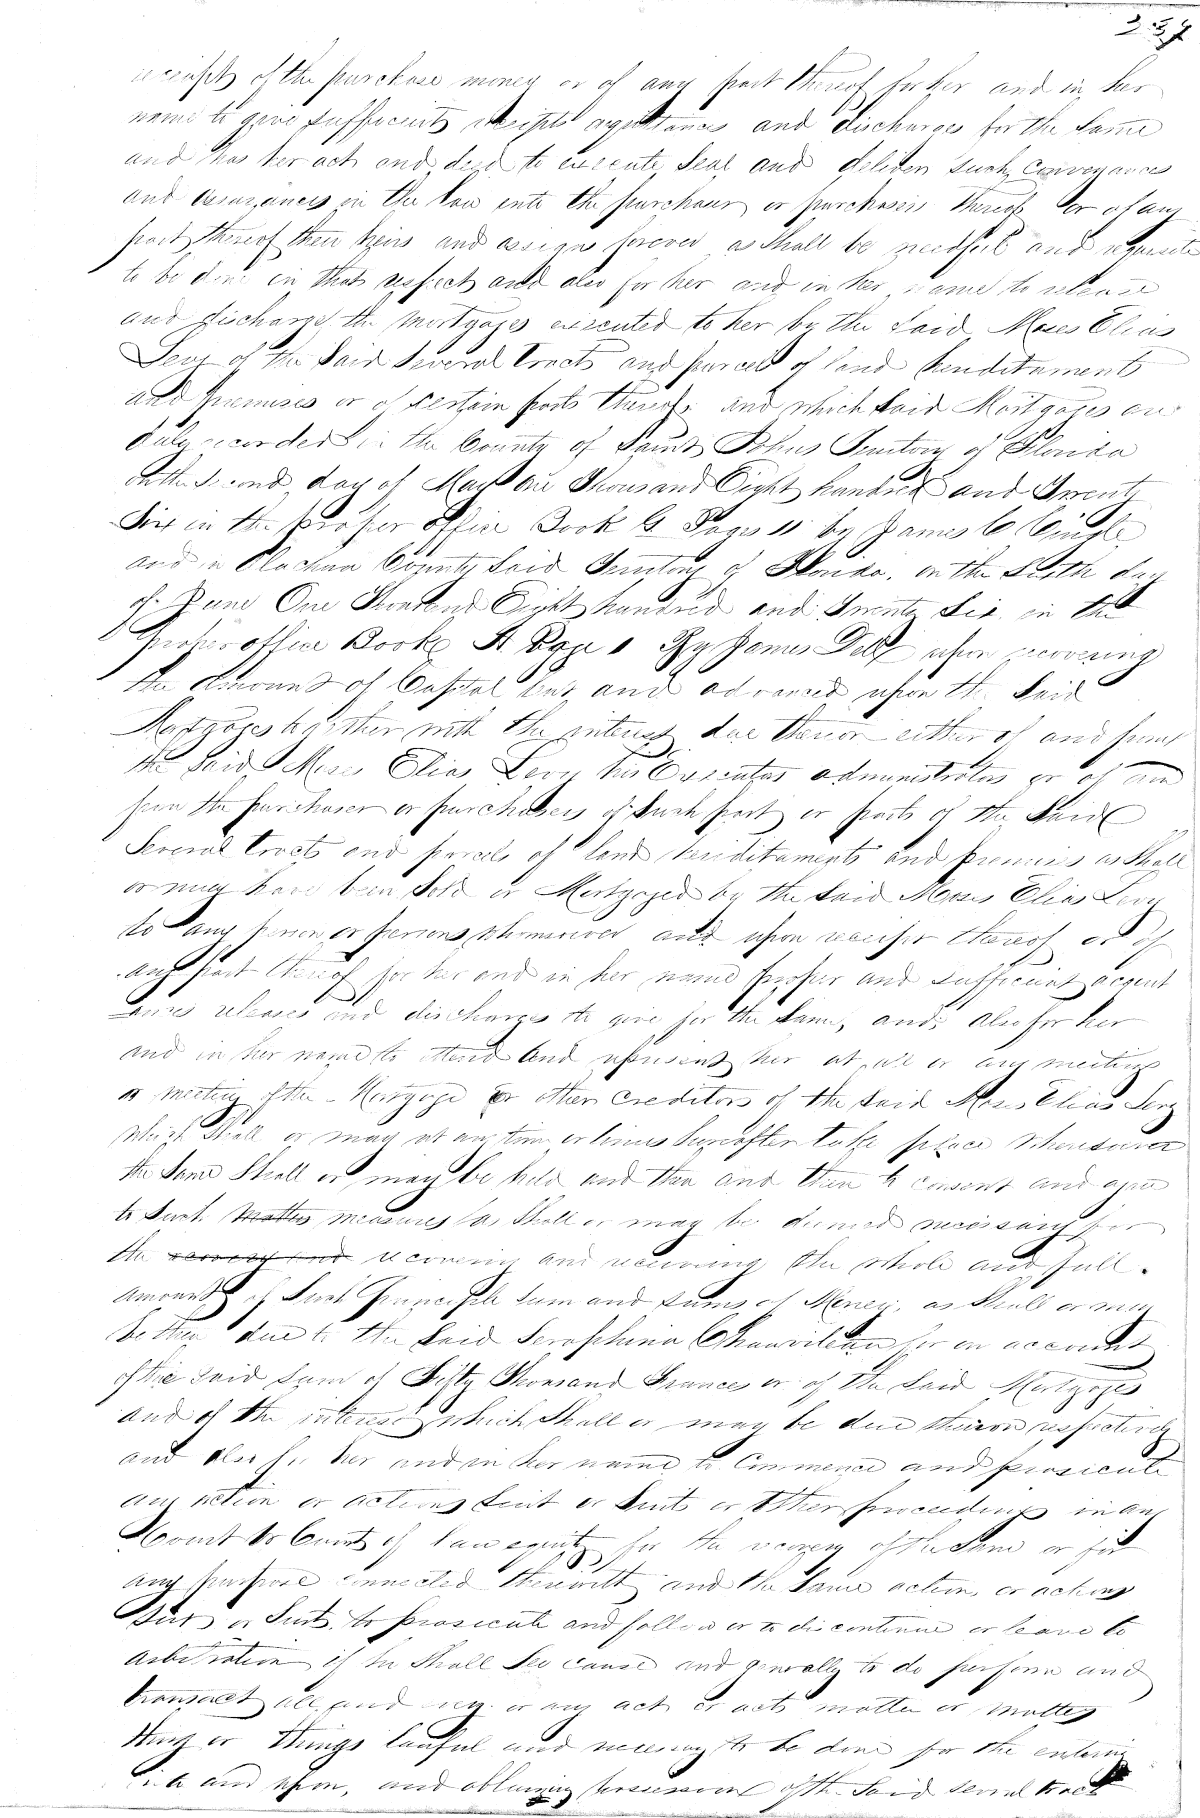 receipts of the purchase money or of any part thereof for her and in her
name to give sufficient receipts aquittances and discharges for the same
and as her act and deed to execute Seal and deliver such conveyances
and assurances in the law unto the purchaser or purchasers thereof or of any
part thereof their heirs and assigns forever as Shall be needful and requisite
to be done in that respect and also for her and in her name to release
and discharge the mortgages executed to her by the Said Moses Elias
Levy of the Said Several tracts and parcels of land heriditaments
and premises or of certain parts thereof and which Said Mortgages are
duly recorded in the County of Saint Johns Territory of Florida
on the second day of May One Thousand Eight hundred and Twenty
Six in the proper office Book G Pages 11 by James C
and in Alachua County Said Territory of Florida, on the Sixth day
of June One Thousand Eight hundred and Twenty Six in the
proper office Book A Page 1 By James Dell upon recovering
the amount of Capital lent and advanced upon the Said
Mortgages together with the interest due thereon either of and from
the Said Moses Elias Levy his Executors administrators or of and
from the purchaser or purchasers of Such part or parts of the Said
Several tracts and parcels of land heriditaments and premises as Shall
or may have been Sold or Mortgaged by the Said Moses Elias Levy
to any person or persons whomsoever and upon receipt thereof or of
any part thereof for her and in her name proper and sufficient acquit
ances releases and discharges to give for the Same, and also for her
and in her name to attend and represent her at all or any meeting
or meeting of the Mortgage or other creditors of the Said Moses Elias Levy
which Shall or may at any time or times hereafter take place wheresoever
the Same Shall or may be held and then and there to consent and agree
to Such matters measures as Shall or may be deemed necessary for
the recovery and recovering and receiving the whole and full
amount of Such Principle Sum and Sums of Money, as Shall or may
be then due to the Said Seraphina Chauviteau for on account
of the Said Sum of Fifty Thousand Frances or of the Said Mortgages
and of the interest which Shall or may be due thereon respectively
and also for her and in her name to Commence and prosicute
any action or actions Suit or Suits or Other proceedings in any
Court or Courts of law equity for the recovery of the Same or for
any purpose connected therewith and the Same action or actions
Suit or Suits to prosicute and follow or to discontinue or leave to
arbitration if he Shall See cause and generally to do perform and
transact all and every or any act or acts matter or matters
thing or things lawful and necessary to be done for the entering
into and upon, and obtaining possession of the Said several tracts